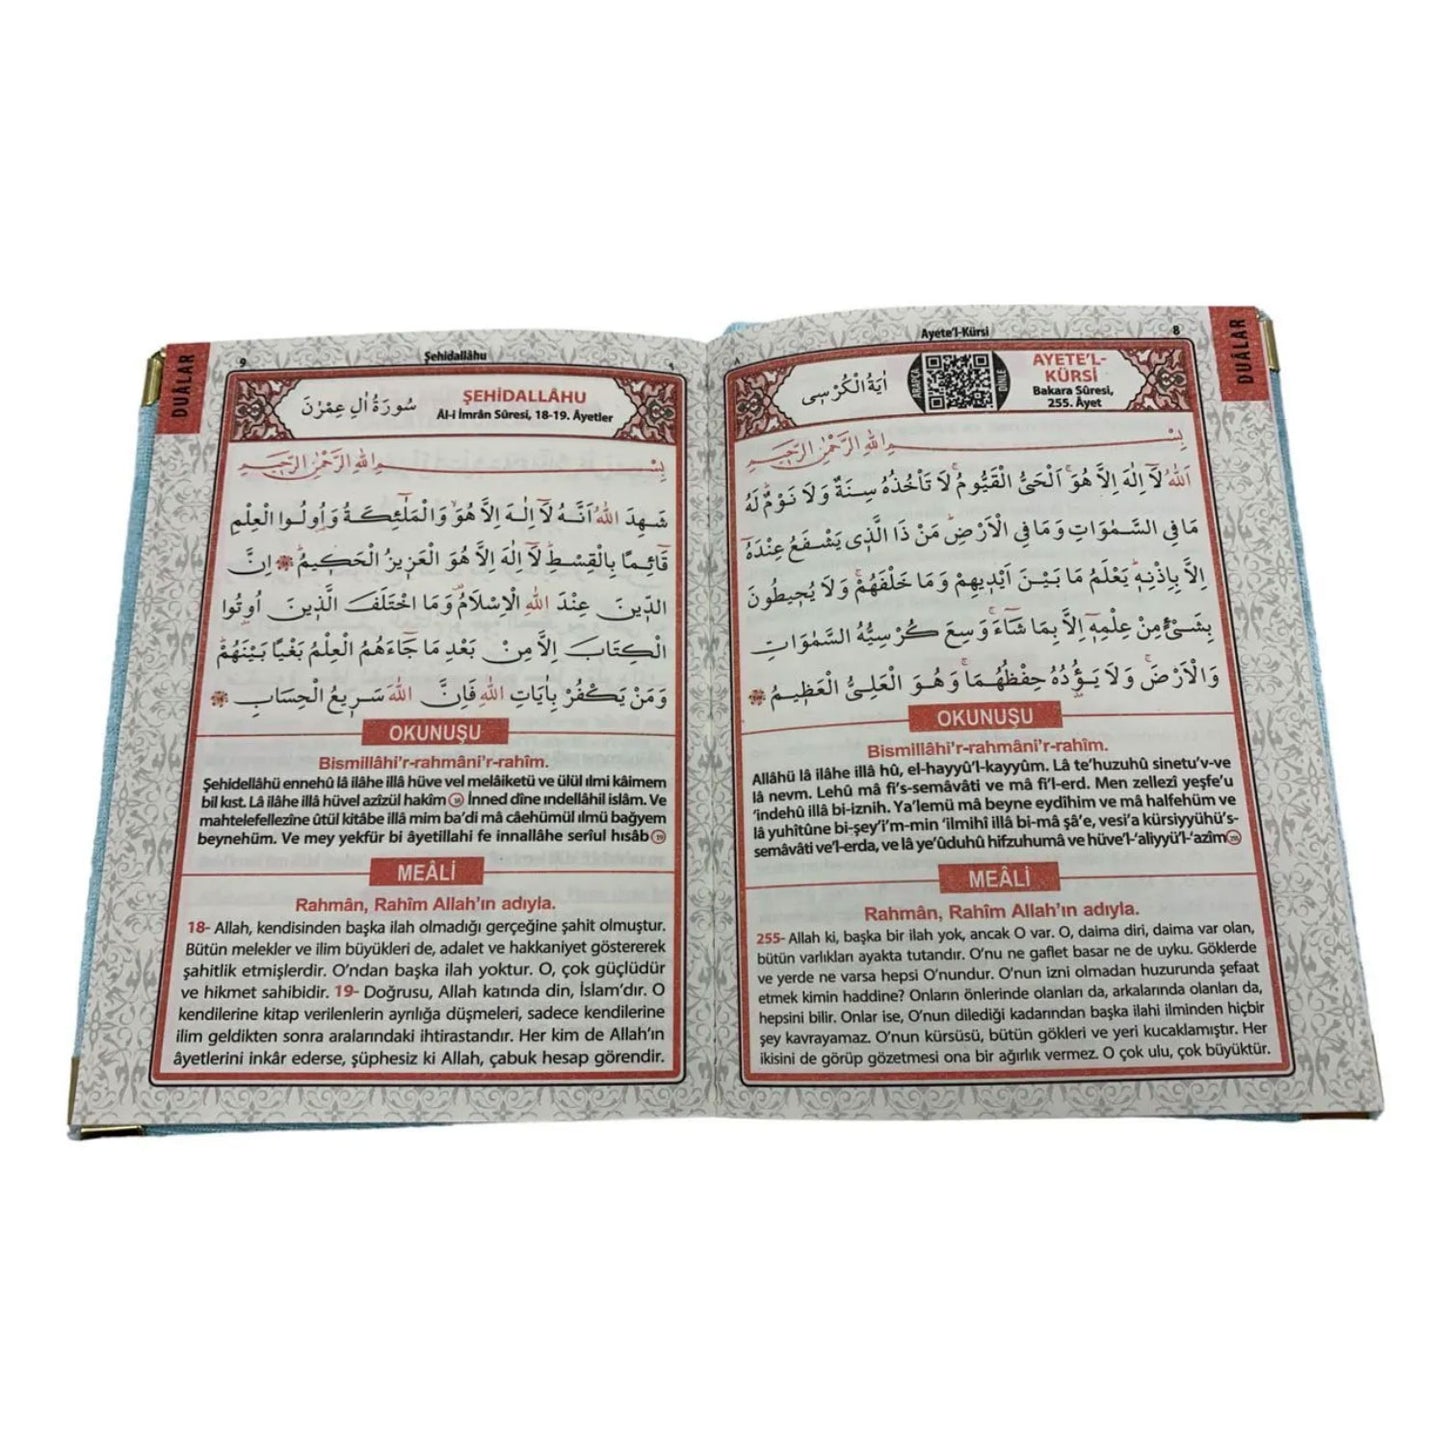 DUÂLAR
Ayete'l-Kürsi
8
٨
اٰيَةُ الْكُرْسِى
ARAPÇA
DİNLE
AYETE'L-
KÜRSİ
Bakara Sûresi,
255. Âyet
بِسْمِ اللهِ الرَّحْمٰنِ الرَّح۪يمِ
اَللهُ لَٓا اِلٰهَ اِلَّا هُوَۚ اَلْحَىُّ الْقَيُّومُۚ لَا تَاْخُذُهُ سِنَةٌ وَلَا نَوْمٌۜ لَهُ
مَا فِى السَّمٰوَاتِ وَمَا فِى الْاَرْضِۜ مَنْ ذَا الَّذ۪ى يَشْفَعُ عِنْدَهُٓ
اِلَّا بِاِذْنِه۪ۜ يَعْلَمُ مَا بَيْنَ اَيْد۪يهِمْ وَمَا خَلْفَهُمْۚ وَلَا يُح۪يطُونَ
بِشَىْءٍ مِنْ عِلْمِه۪ٓ اِلَّا بِمَا شَٓاءَۚ وَسِعَ كُرْسِيُّهُ السَّمٰوَاتِ
وَالْاَرْضَۚ وَلَا يَؤُ۫دُهُ حِفْظُهُمَاۚ وَهُوَ الْعَلِىُّ الْعَظ۪يمُ
OKUNUŞU
Bismillâhi'r-rahmâni'r-rahîm.
Allâhü lâ ilâhe illâ hû, el-hayyû'l-kayyûm. Lâ te'huzuhû sinetu'v-ve
lâ nevm. Lehû mâ fi's-semâvâti ve mâ fi'l-erd. Men zellezî yeşfe'u
'indehû illâ bi-iznih. Ya'lemü mâ beyne eydîhim ve mâ halfehüm ve
lâ yuhîtûne bi-şey'i'm-min 'ilmihî illâ bi-mâ şâ'e, vesi'a kürsiyyühü's-
semâvâti ve'l-erda, ve lâ ye'ûduhû hifzuhumâ ve hüve'l-'aliyyü'l-'azîm
MEÂLİ
Rahmân, Rahîm Allah'ın adıyla.
255- Allah ki, başka bir ilah yok, ancak O var. O, daima diri, daima var olan,
bütün varlıkları ayakta tutandır. O'nu ne gaflet basar ne de uyku. Göklerde
ve yerde ne varsa hepsi O'nundur. O'nun izni olmadan huzurunda şefaat
etmek kimin haddine? Onların önlerinde olanları da, arkalarında olanları da,
hepsini bilir. Onlar ise, O'nun dilediği kadarından başka ilahi ilminden hiçbir
şey kavrayamaz. O'nun kürsüsü, bütün gökleri ve yeri kucaklamıştır. Her
ikisini de görüp gözetmesi ona bir ağırlık vermez. O çok ulu, çok büyüktür.
DUÂLAR
9
Şehidallâhu
٩
سُورَةُ اٰلِ عِمْرٰنَ
ŞEHİDALLÂHU
Âl-i İmrân Sûresi, 18-19. Âyetler
بِسْمِ اللهِ الرَّحْمٰنِ الرَّح۪يمِ
شَهِدَ اللهُ اَنَّهُ لَٓا اِلٰهَ اِلَّا هُوَۙ وَالْمَلٰٓئِكَةُ وَاُو۬لُوا الْعِلْمِ
قَٓائِمًا بِالْقِسْطِۜ لَٓا اِلٰهَ اِلَّا هُوَ الْعَز۪يزُ الْحَك۪يمُۜ اِنَّ
الدّ۪ينَ عِنْدَ اللهِ الْاِسْلَامُ۠ وَمَا اخْتَلَفَ الَّذ۪ينَ اُو۫تُوا
الْكِتَابَ اِلَّا مِنْ بَعْدِ مَا جَٓاءَهُمُ الْعِلْمُ بَغْيًا بَيْنَهُمْۜ
وَمَنْ يَكْفُرْ بِاٰيَاتِ اللهِ فَاِنَّ اللهَ سَر۪يعُ الْحِسَابِ
OKUNUŞU
Bismillâhi'r-rahmâni'r-rahîm.
Şehidellâhü ennehû lâ ilâhe illâ hüve vel melâiketü ve ülül ılmi kâimem
bil kıst. Lâ ilâhe illâ hüvel azîzül hakîm 18 İnned dîne ındellâhil islâm. Ve
mahtelefellezîne ûtül kitâbe illâ mim ba'di mâ câehümül ılmü bağyem
beynehüm. Ve mey yekfür bi âyetillahi fe innallâhe serîul hısâb 19
MEÂLİ
Rahmân, Rahîm Allah'ın adıyla.
18- Allah, kendisinden başka ilah olmadığı gerçeğine şahit olmuştur.
Bütün melekler ve ilim büyükleri de, adalet ve hakkaniyet göstererek
şahitlik etmişlerdir. O'ndan başka ilah yoktur. O, çok güçlüdür
ve hikmet sahibidir. 19- Doğrusu, Allah katında din, İslam'dır. O
kendilerine kitap verilenlerin ayrılığa düşmeleri, sadece kendilerine
ilim geldikten sonra aralarındaki ihtirastandır. Her kim de Allah'ın
âyetlerini inkâr ederse, şüphesiz ki Allah, çabuk hesap görendir.